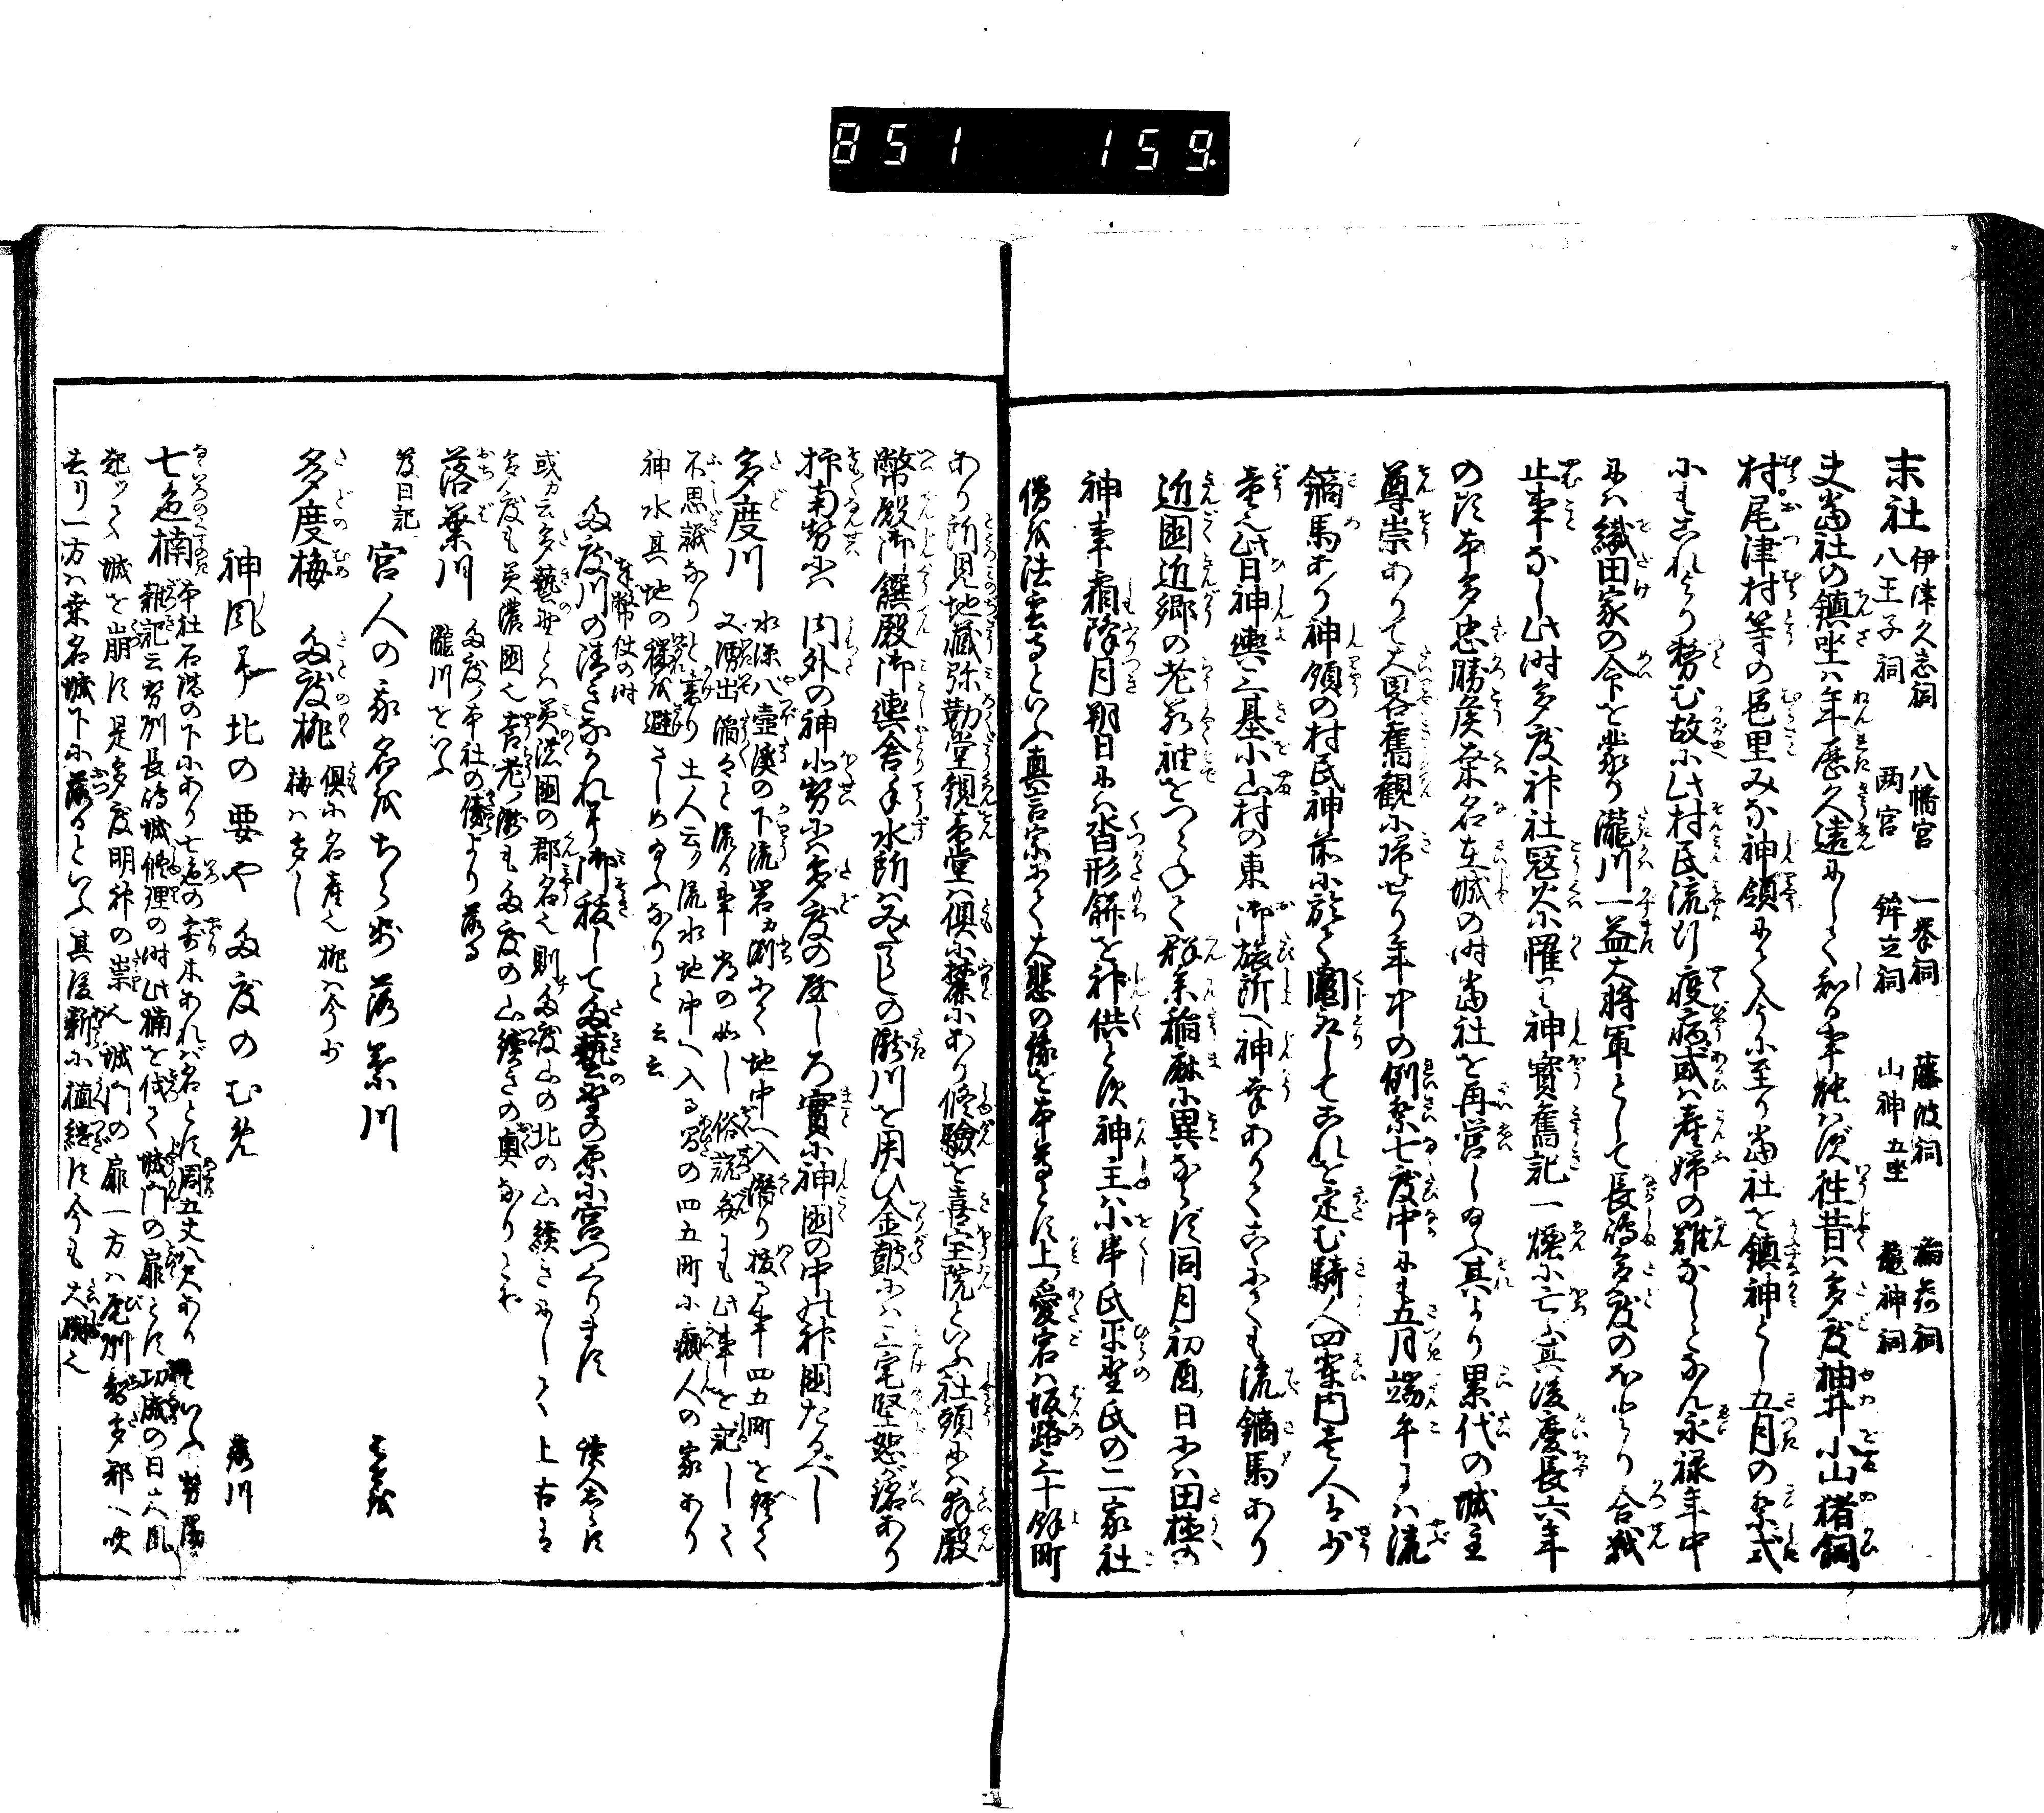 851 159.
末社 伊津久志祠 八幡宮 一拳祠 藤波祠 稲荷祠
八王子祠 両宮 鉾立祠 山神五座 竜神祠
夫当社の鎮坐は年歴久遠にして知る事能はず往昔は多度柚井小山猪飼
村尾津村等の邑里みな神領にて今に至り当社を鎮神とし五月の祭式
にもこれより勢む故に此村民流行疫病或は産婦の難なしとなん永禄年中
には織田家の命を蒙り瀧川一益大将軍として長島多度のほとり合戦
止事なし此時多度神社寇火に罹つて神宝旧記一煙に亡ふ其後慶長六年
の比本多忠勝侯桑名在城の時当社を再営し給へ其より累代の城主
尊崇ありて大畧旧観に帰せり年中の例祭七度中にも五月端午には流
鏑馬あり神領の村民神前に於て鬮取してこれを定む騎人四案内壱人
此日神輿三基小山村の東御旅所へ神幸ありてこゝにても流鏑馬あり
近国近郷の老若袖をつらねて群集稲麻に異ならず同月初酉ノ日には田植の
神事霜降月朔日には沓形餅を神供とす神主は小串氏平野氏の二家社
僧を法雲寺といふ真言宗にて大悲の像を本尊とす上愛宕は坂路三十余町
あり所見地蔵弥勒堂観音堂は倶に麓にあり修験を喜宝院といふ社頭には拝殿
幣殿御饌殿御輿舎手水所はみたらしの瀧川を用ひ金鼓には三宅堅恕が銘あり
抑南勢に内外の神北勢に多度の座しろ実に神国の中の神国たるべし
多度川 水源八壺渓の下流岩ヶ渕にて地中へ入潜り抜る事四五町を経て
又湧出滴々と流る事常の如し俗説多くも此事を記して
不思議なりと書り土人云ク流水地中へ入る写の四五町に癩人の家あり
神水其地の穢を避さしめ給ふなりと云云
奉幣使の時
多度川の清きながれに御秡して多芸野の原に宮つくります
或カ云多芸野とは美濃国の郡名也則多度山の北の山続きにして上古は
多度も美濃国也養老ノ瀧も多度の山続きの奥なりとぞ
落葉川 多度本社の傍より落る
瀧川をいふ
及日記
宮人の家名をちらす落葉川
多度梅 多度桃 倶に名産也桃は今少
梅は多し
神風や北の要や多度のむめ 落川
七色楠 本社石階の下にあり七色の寄木あれば名とす周五丈八尺あり
雑記云勢州長島城修理の時此楠を伐て城門の扉とす功成の日大風
起ツて城を崩す是多度明神の祟ト人城門の扉一方は尾州知多郡へ吹
去リ一方は桑名城下に落るといふ其後新に植継す今も大樹也